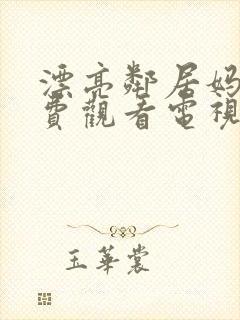 漂亮鄰居媽
費觀看電視
玉華裳